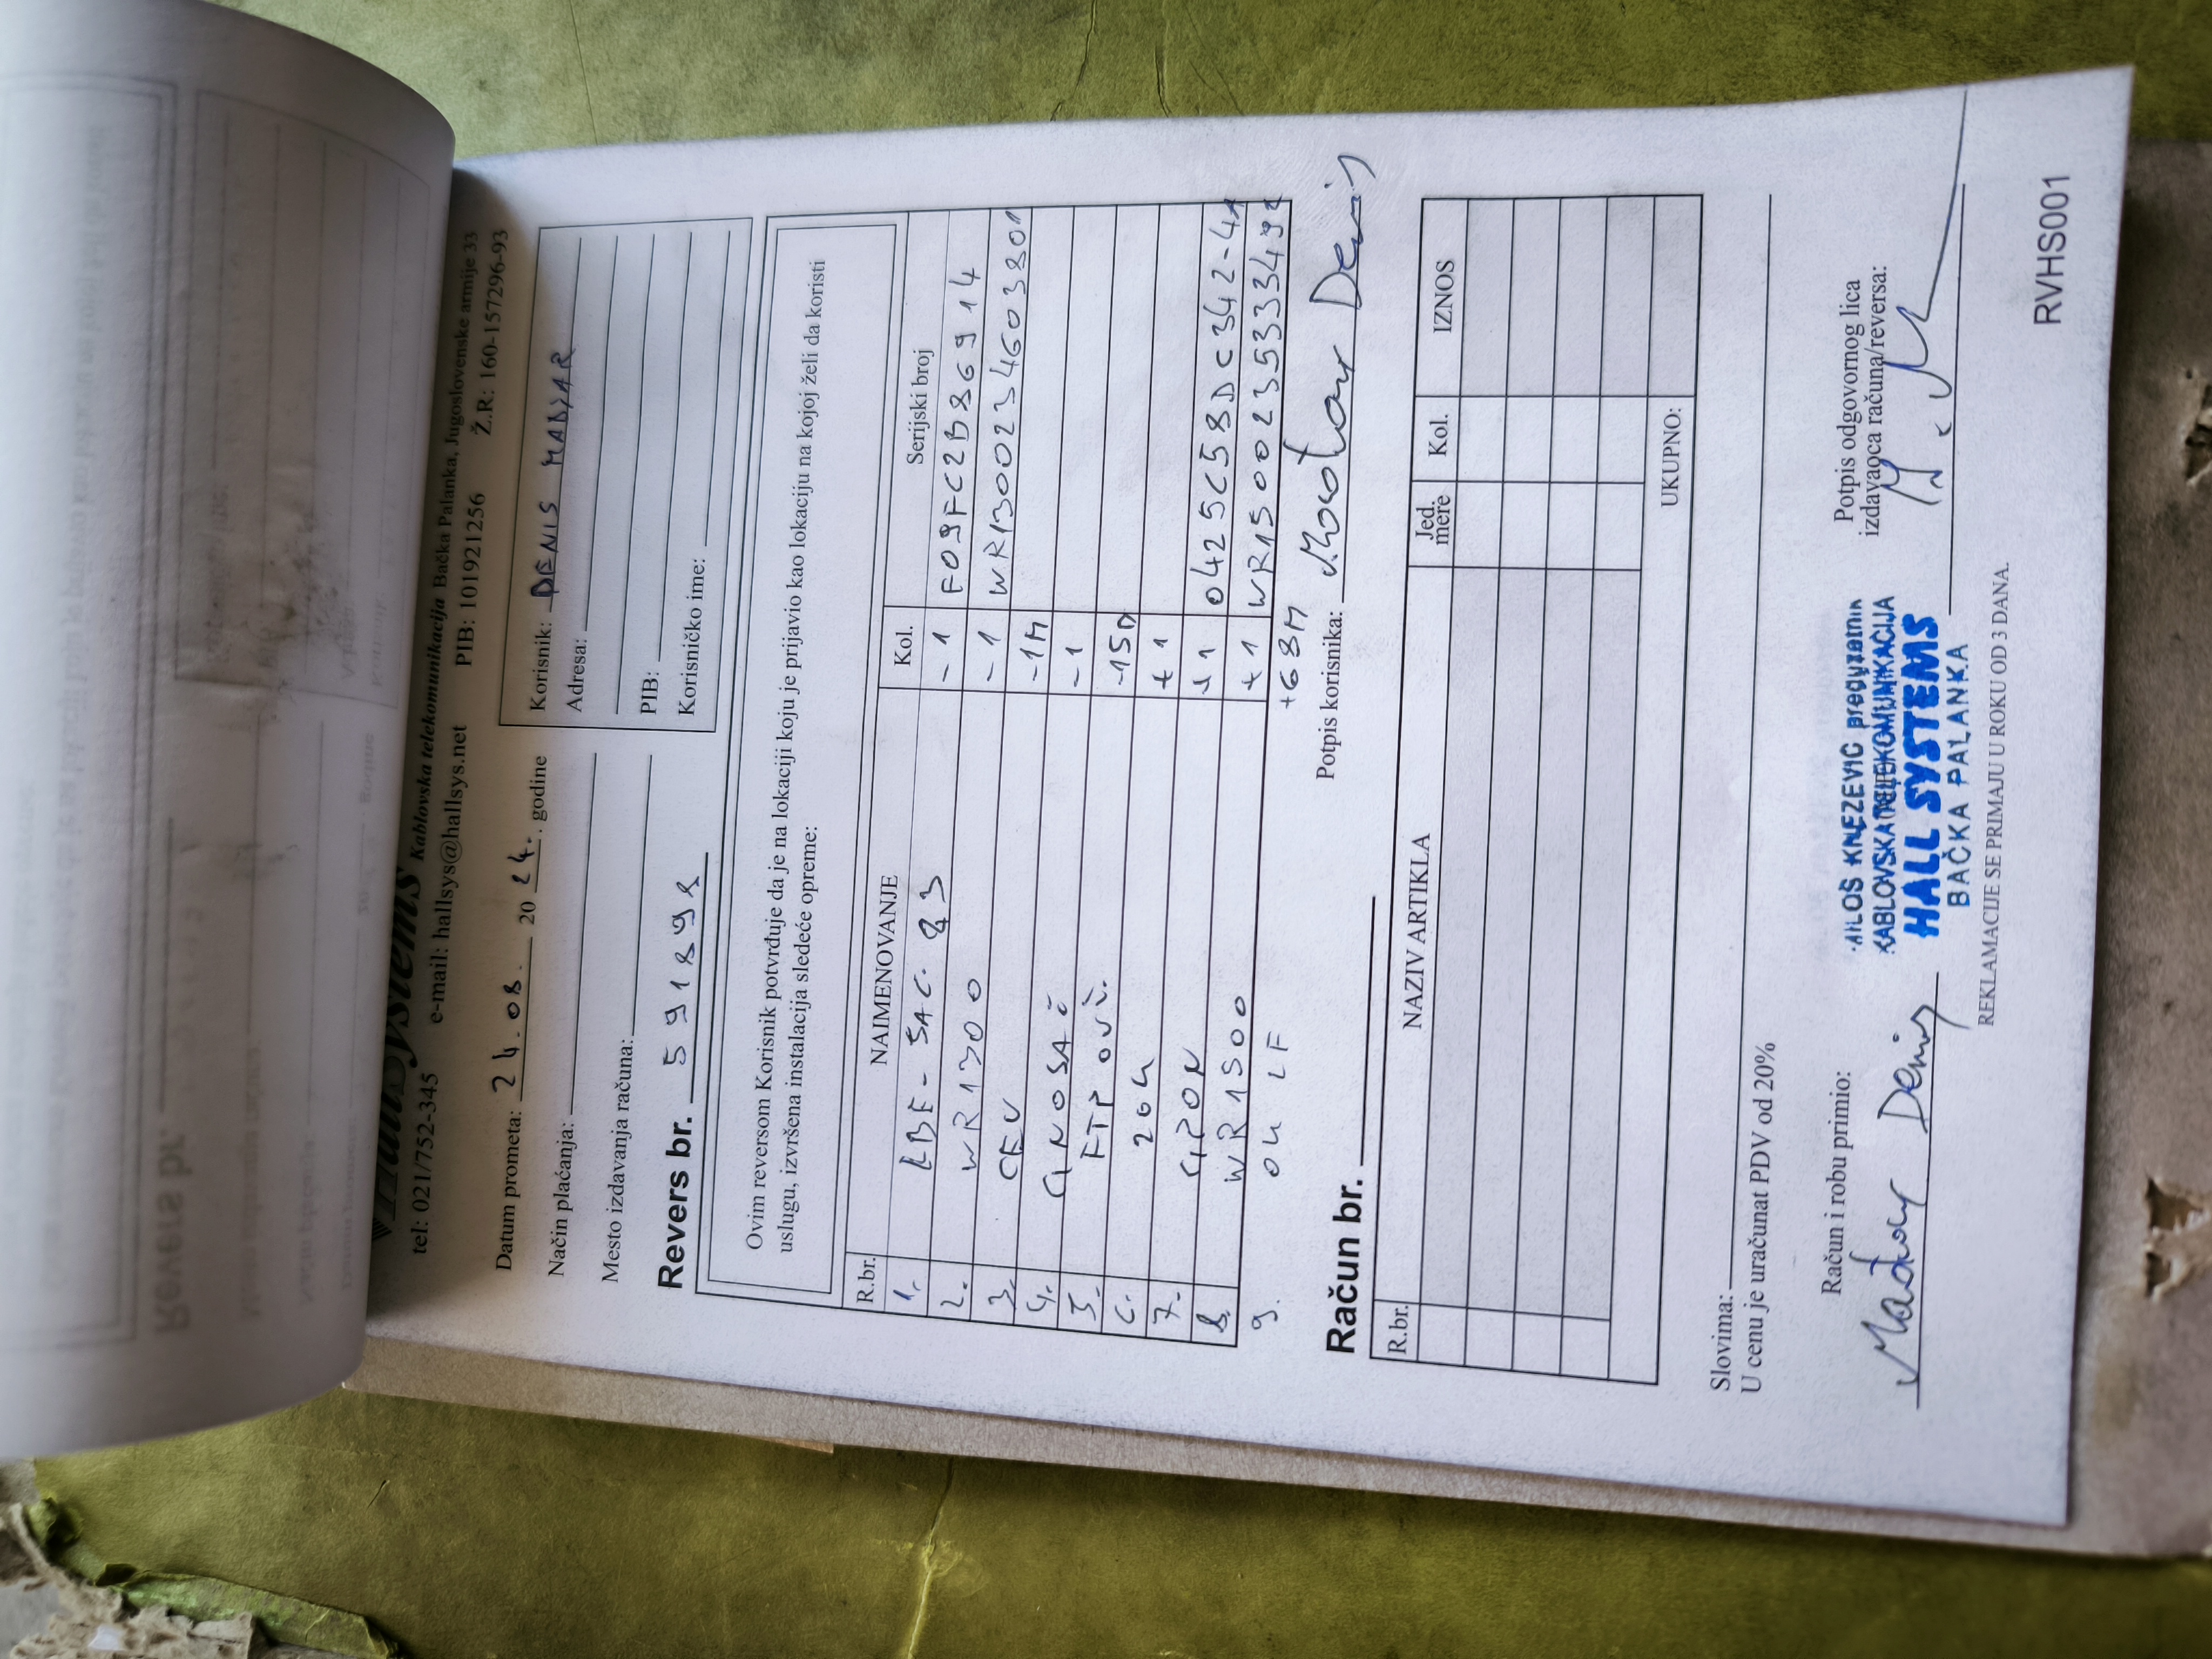 HallSystems Kablovska telekomunikacija Bačka Palanka, Jugoslovenske armije 33
tel: 021/752-345 e-mail: hallsys@hallsys.net PIB: 101921256 Ž.R: 160-157296-93
Datum prometa: 24.08. 2024. godine
Način plaćanja:
Mesto izdavanja računa:
Revers br. 591898
Korisnik: DENIS MADJAR
Adresa:
PIB:
Korisničko ime:
Ovim reversom Korisnik potvrđuje da je na lokaciji koju je prijavio kao lokaciju na kojoj želi da koristi
uslugu, izvršena instalacija sledeće opreme:
R.br. NAIMENOVANJE Kol. Serijski broj
1. LBE-5AC.23 -1 F09FC2B86914
2. WR1300 -1
3. CEV -1M
4. GINOSAČ -1
5. FTP
6. 204 +1
7. GPON +1
8. WR1500 +1
9. 04 LF +68M
Potpis korisnika: Madar Denis
Račun br.
R.br. NAZIV ARTIKLA Jed. mere Kol. IZNOS
UKUPNO:
Slovima:
U cenu je uračunat PDV od 20%
Račun i robu primio:
Madar Denis
MILOS KNEZEVIC preduzetnik
KABLOVSKA TELEKOMUNIKACIJA
HALL SYSTEMS
BAČKA PALANKA
Potpis odgovornog lica
izdavaoca računa/reversa:
REKLAMACIJE SE PRIMAJU U ROKU OD 3 DANA.
RVHS001
Revers br.